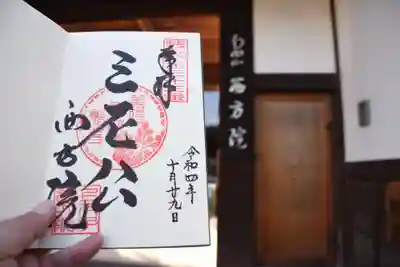 奉拝
三石公
西方院
令和四年
十月廿九日
西方院